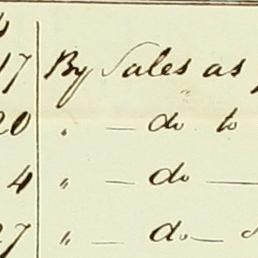 17 By Sales as
20 " — do to
4 " — do —
27 " — do —